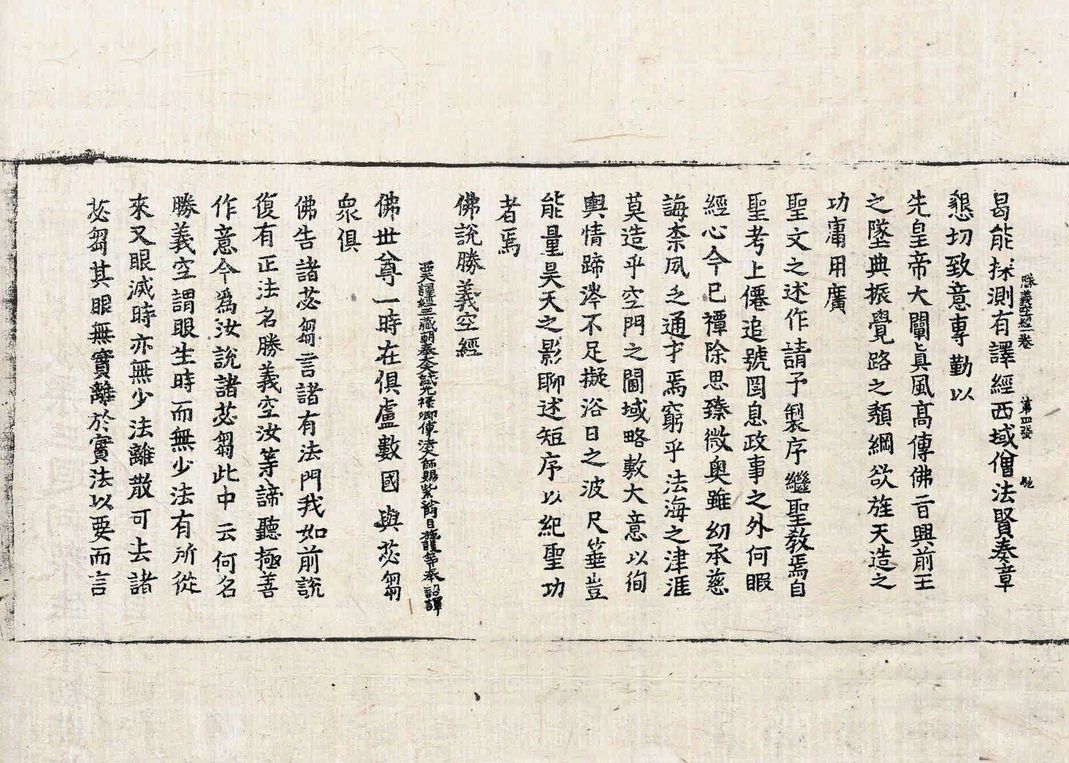 曷能探測有譯經西域僧法賢奏章
勝義空經一卷 第四張
懇切致意専勤以
先皇帝大闡眞風高傳佛旨興前王
之墜典振覺路之頽綱欲旌天造之
功庸用廣
聖文之述作請予製序繼聖教焉自
聖考上僊追號罔息政事之外何暇
經心今已禫除思臻微奧雖紉承慈
誨柰夙乏通才焉窮乎法海之津涯
莫造乎空門之閫域略敷大意以徇
輿情蹄涔不足擬浴日之波尺箠豈
能量昊天之影聊述短序以紀聖功
者焉
佛說勝義空經
西天譯經三藏朝奉大夫試光祿卿傳法大師賜紫臣施護等奉 詔譯
佛世尊一時在俱盧數國與苾芻
衆俱
佛告諸苾芻言諸有法門我如前說
復有正法名勝義空汝等諦聽極善
作意今爲汝說諸苾芻此中云何名
勝義空謂眼生時而無少法有所從
來又眼滅時亦無少法離散可去諸
苾芻其眼無實離於實法以要而言